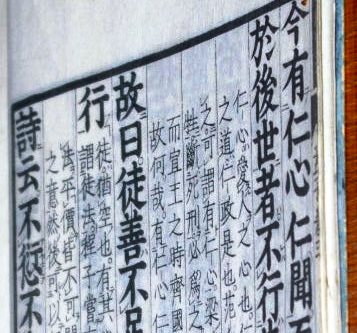 今有仁心仁聞而
於後世者不行先
仁心愛人之心也仁
之道仁政是也范
之可謂有仁心梁
斷死刑必爲之
而宣王之時齊國
故何哉有仁心仁
故曰徒善不足
行
徒猶空也有其
謂徒去程子嘗
平價皆不可闕
之意然後可以
詩云不愆不